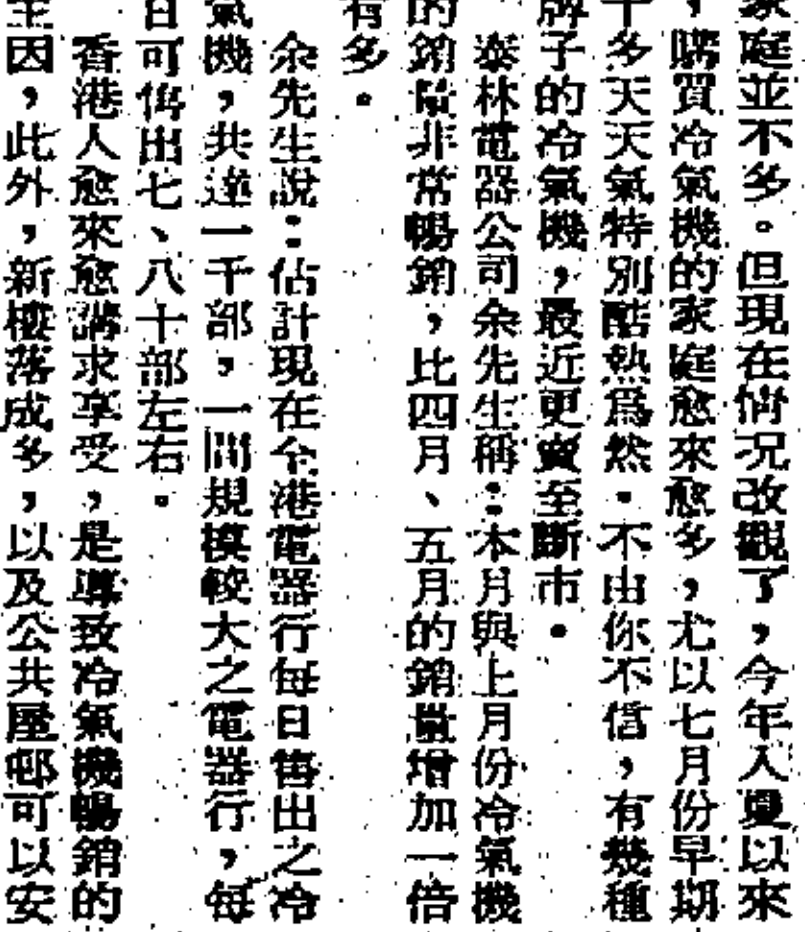 家庭並不多。但現在情況改觀了，今年入夏以來
，購買冷氣機的家庭愈來愈多，尤以七月份早期
十多天天氣特別酷熱爲然。不由你不信，有幾種
牌子的冷氣機，最近更賣至斷市。
泰林電器公司余先生稱：本月與上月份冷氣機
的銷量非常暢銷，比四月、五月的銷量增加一倍
有多。
余先生說：估計現在全港電器行每日售出之冷
氣機，共達一千部，一間規模較大之電器行，每
日可售出七、八十部左右。
香港人愈來愈講求享受，是導致冷氣機暢銷的
主因，此外，新樓落成多，以及公共屋邨可以安